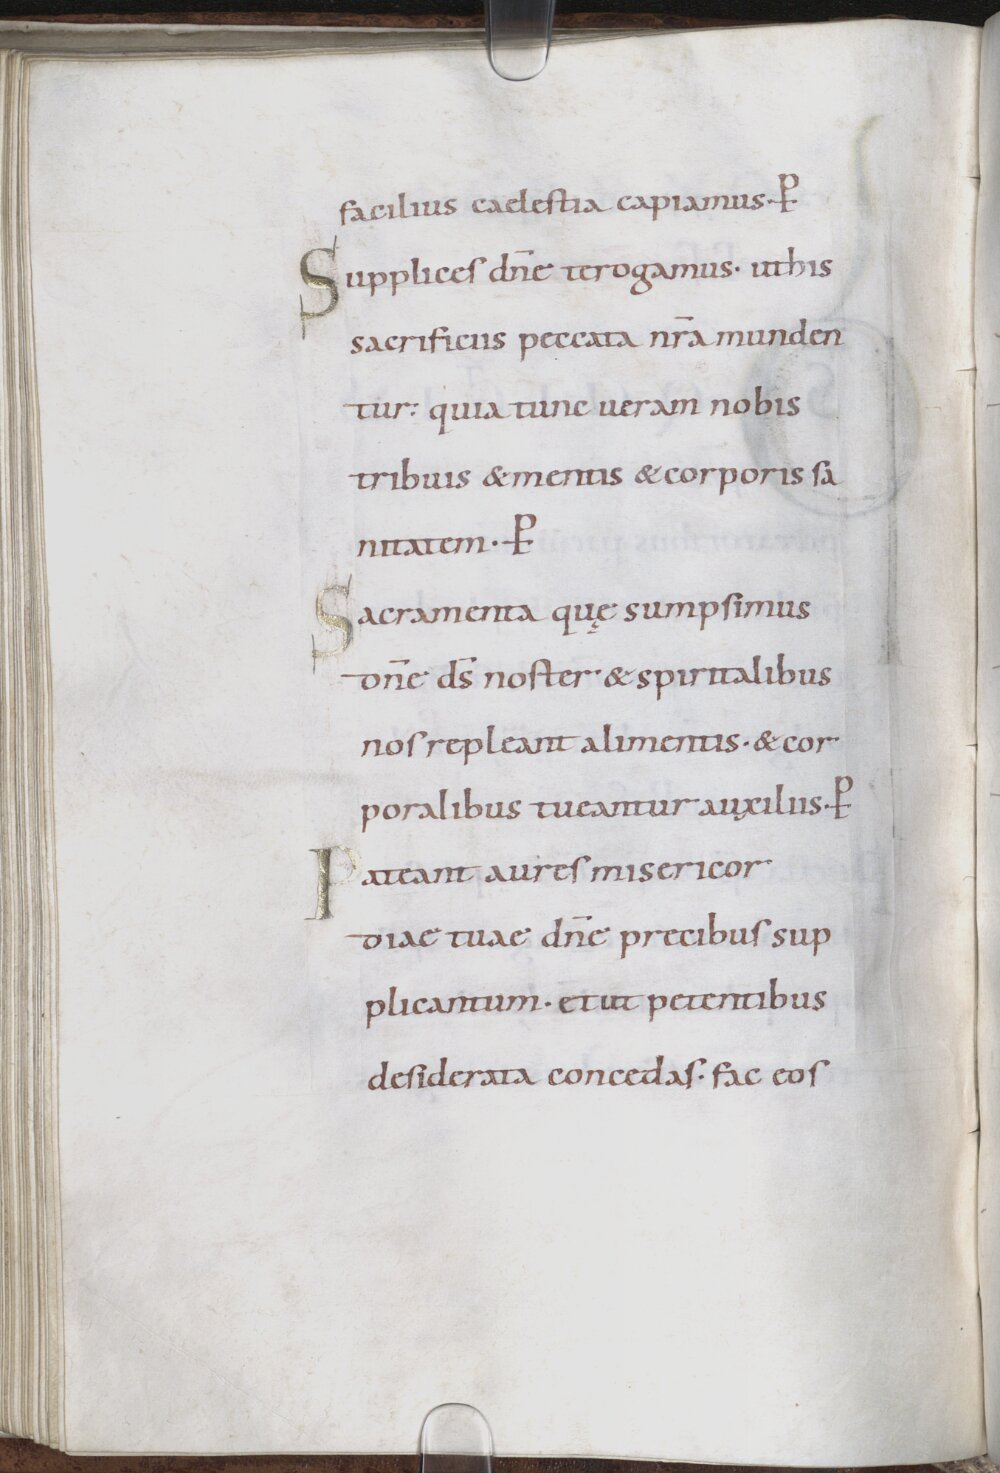 facilius caelestia capiamus· P̵
Supplices dn̄e te rogamus· ut his
sacrificiis peccata nr̄a munden
tur: quia tunc ueram nobis
tribuis & mentis & corporis sa
nitatem· P̵
Sacramenta quę sumpsimus
dn̄e ds̄ noster· & spiritalibus
nos repleant alimentis· & cor
poralibus tueantur auxiliis· P̵
Pateant aures misericor
diae tuae dn̄e precibus sup
plicantum· et ut petentibus
desiderata concedas· fac eos